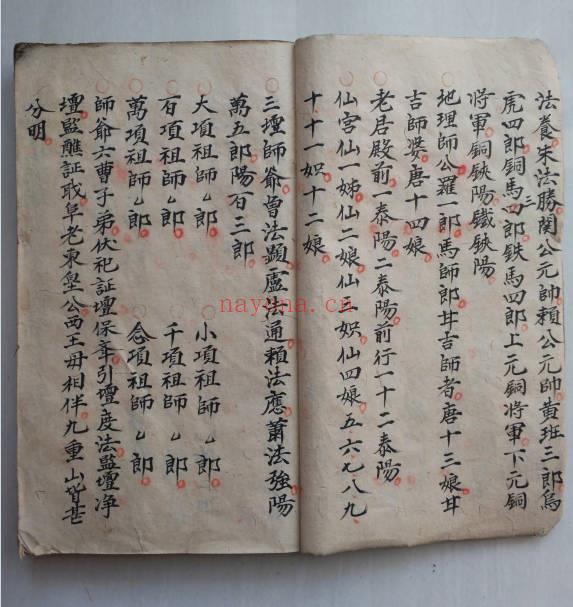 法養朱法勝関公元帥賴公元帥黃班三郎烏
虎四郎銅馬三四郎鉄馬四郎上元銅將軍下元銅
將軍銅鋏陽鐵鋏陽
地理師公羅一郎馬師郎廿吉師者唐十三娘廿
吉師婆唐十四娘
老居殿前一泰陽二泰陽前行一十二泰陽
仙宮仙一姊仙二娘仙一娘仙四娘五六七八九
十十一娘十二娘
三壇師爺曾法顕盧法通賴法應蕭法強陽
萬五郎陽百三郎
大項祖師乙郎 小項祖師乙郎
百項祖師乙郎 千項祖師乙郎
萬項祖師乙郎 念項祖師乙郎
師爺六曹子弟伏祀証壇保奉引壇度法監壇净
壇監醮証戝阜老東皇公西王母相伴九重山皆芒
分明
nayona.cn